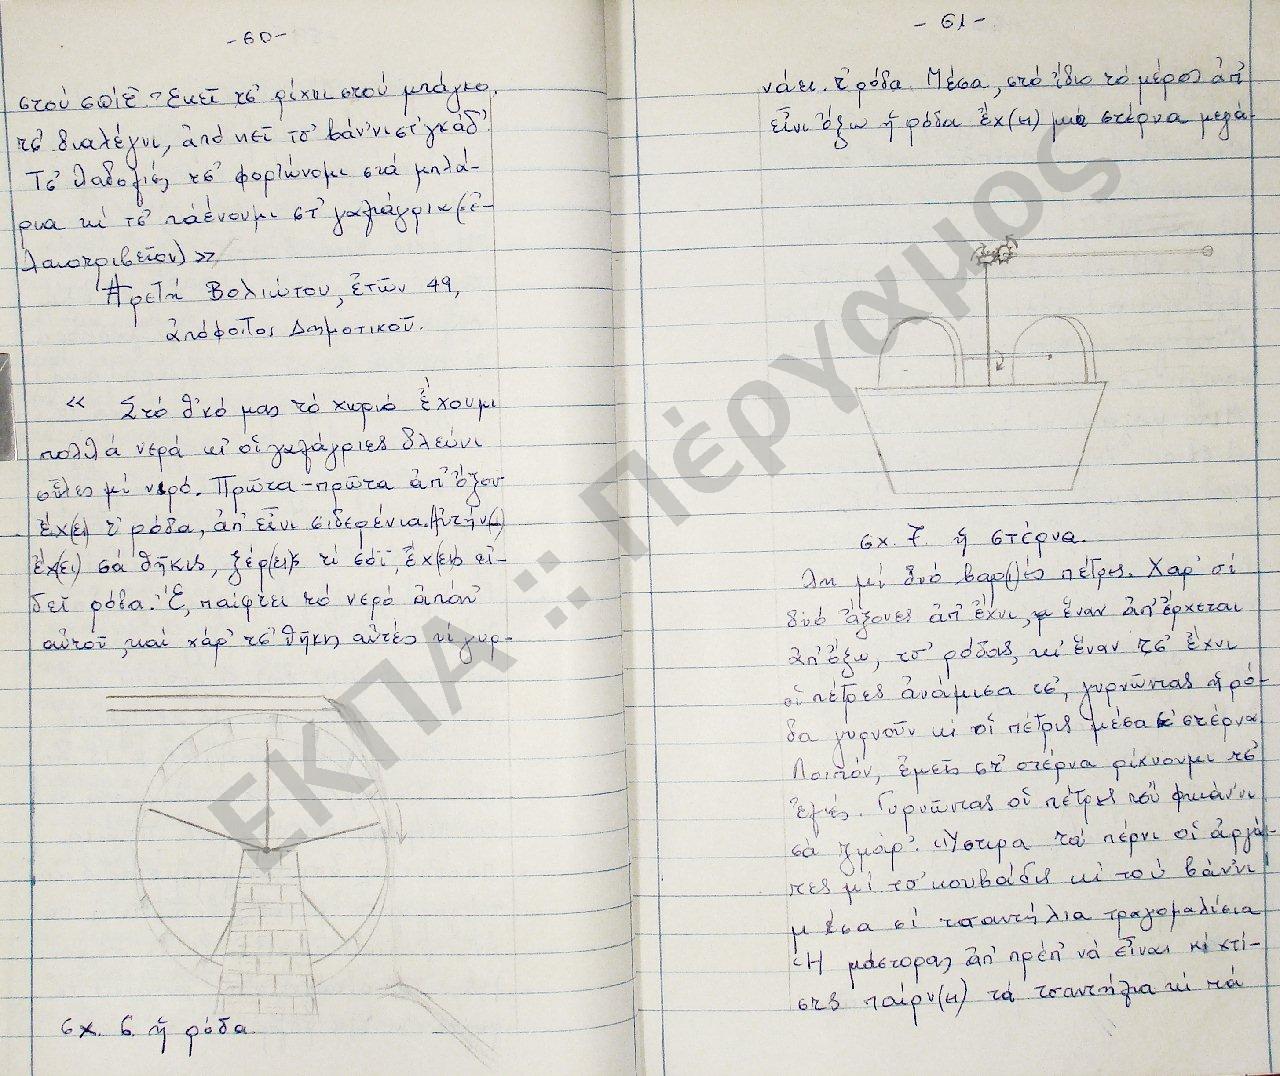 -60-
στού σπίτ'. Ἐκεῖ τσ' ρίχνι στού μπάγκο.
τσ' διαλέγνι, ἀπό κεῖ τσ' βάν'νι στ' γκάδ'.
Τσ' λαδολιές τσ' φορτώνομι στά μπλά-
ρια κί τσ' παένουμι στ' γαλιάγρικ(ἐ-
λαιοτριβεῖον) »
Ἀρετή Βολιώτου, ἐτῶν 49,
ἀπόφοιτος Δημοτικοῦ.
« Στό θ'κό μας τό χωριό ἔχουμι
πολλά νερά κι οἱ γαλιάγριες δλεύνι
οὗλες μί νιρό. Πρῶτα-πρῶτα ἀπ' ὄξου
ἔχ(ει) τ' ρόδα, ἀπ' εἶνι σιδερένια. Αὐτήν(-)
ἔχ(ει) σά θῆκις, ξέρ(εις) τί ἐσύ, ἔχ(εις) εἰ-
δεῖ ρόδα. Ἔ, παίφτει τό νερό ἀπάν'
αὐτοῦ, καί χάρ' τσ' θῆκις αὐτές τι γυρ-
σχ. 6 ἡ ρόδα.
-61-
νάει τ' ρόδα. Μέσα, στό ἴδιο τό μέρος ἀπ'
εἶνι ὄξω ἡ ρόδα ἔχ(ει) μια στέρνα μεγά-
σχ. 7. ἡ στέρνα.
λη μί δυό βαρ(ι)ές πέτρες. Χάρ' σί
δυό ἄξονες ἀπ' ἔχνι, ἕναν ἀπ' ἔρχεται
ἀπ' ὄξω, τσ' ρόδας, κι' ἕναν τσ' ἔχνι
οἱ πέτρες ἀνάμισα τσ', γυρνῶντας ἡ ρό-
δα γυρνοῦν κι οἱ πέτρις μέσα σ' στέρνα
Λοιπόν, ἐμεῖς στ' στέρνα ρίχνουμι τσ'
ἐλιές. Γυρνῶντας οἱ πέτρες τσ' φκιάν'νι
σά ζμάρ'. Ὕστιρα τά πέρνι οἱ ἀργά-
τες μί τσ' κουβάδις κι τού βάν'νι
μέσα σί τσαντήλια τραγομαλίσια
Ἡ μάστορας ἀπ' πρέπ' νά εἶναι κι χτί-
στς παίρν(ει) τά τσαντήλια κι τά
ΕΚΠΑ :: Πέργαμος